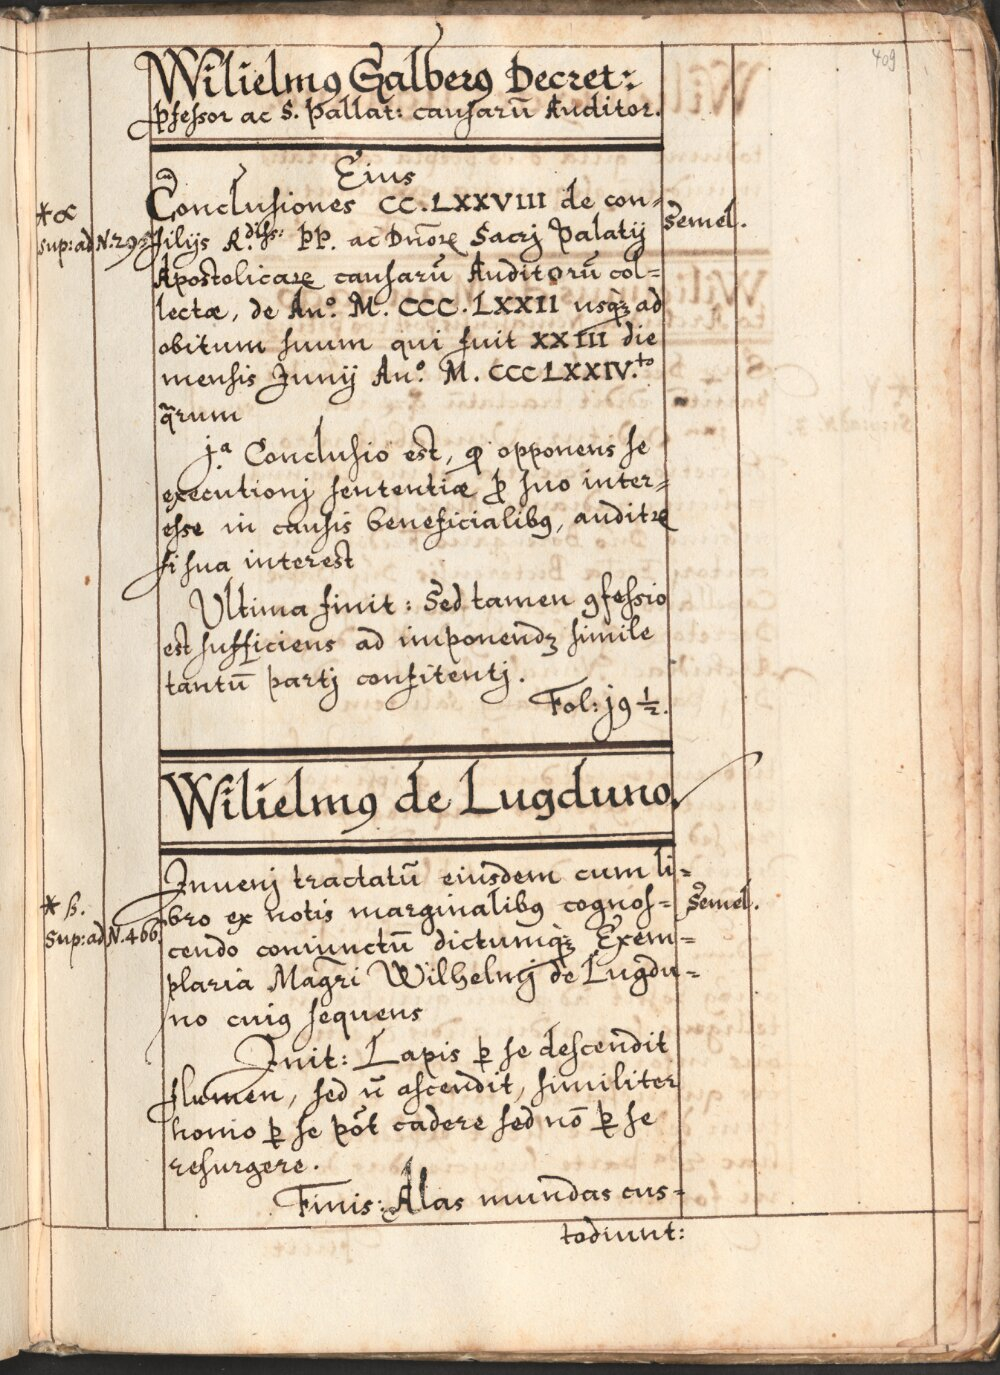 409
Wilielmꝯ Galberꝯ Decret:
ꝓfessor ac S. Pallat: causarū Auditor.
Eius
Conclusiones CC.LXXVIII de con=
silijs R.diss: PP. ac Dnōrꝝ Sacrj Palatij
Apostolicarꝝ causarū Auditorū col=
lectæ, de An.o M. CCC. LXXII usqꝫ ad
obitum suum qui fuit XXIII die
mensis Junij An.o M. CCCLXXIV.to
q̄rum
j.a Conclusio est, ꝙ opponens se
executionj sententiæ ꝓ suo inter=
esse in causis beneficialibꝯ, auditꝛ
si sua interest
Ultima finit: Sed tamen ꝯfessio
est sufficiens ad imponendꝫ simile
tantū partj confitentj.
Fol: j9 ½.
* α
Sup: ad N. 295
Semel.
Wilielmꝯ de Lugduno.
Jnuenj tractatū eiusdem cum li=
bro ex notis marginalibꝯ cognos=
cendo coniunctū dictumqꝫ Exem=
plaria Magr̄i Wilhelmj de Lugdu=
no cuiꝯ sequens
Jnit: Lapis ꝑ se descendit
flumen, sed n̄ ascendit, similiter
homo ꝑ se pōt cadere sed nō ꝑ se
resurgere.
Finis: Alas mundas cus=
todiunt:
* β.
Sup: ad N. 466.
Semel.